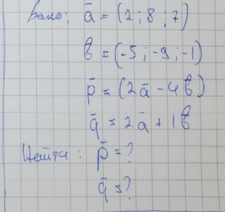 Дано: ā = (2; 8; 7)
b̄ = (-5; -9; -1)
p̄ = (2ā - 4b̄)
q̄ = 2ā + 1b̄
Найти: p̄ = ?
q̄ = ?